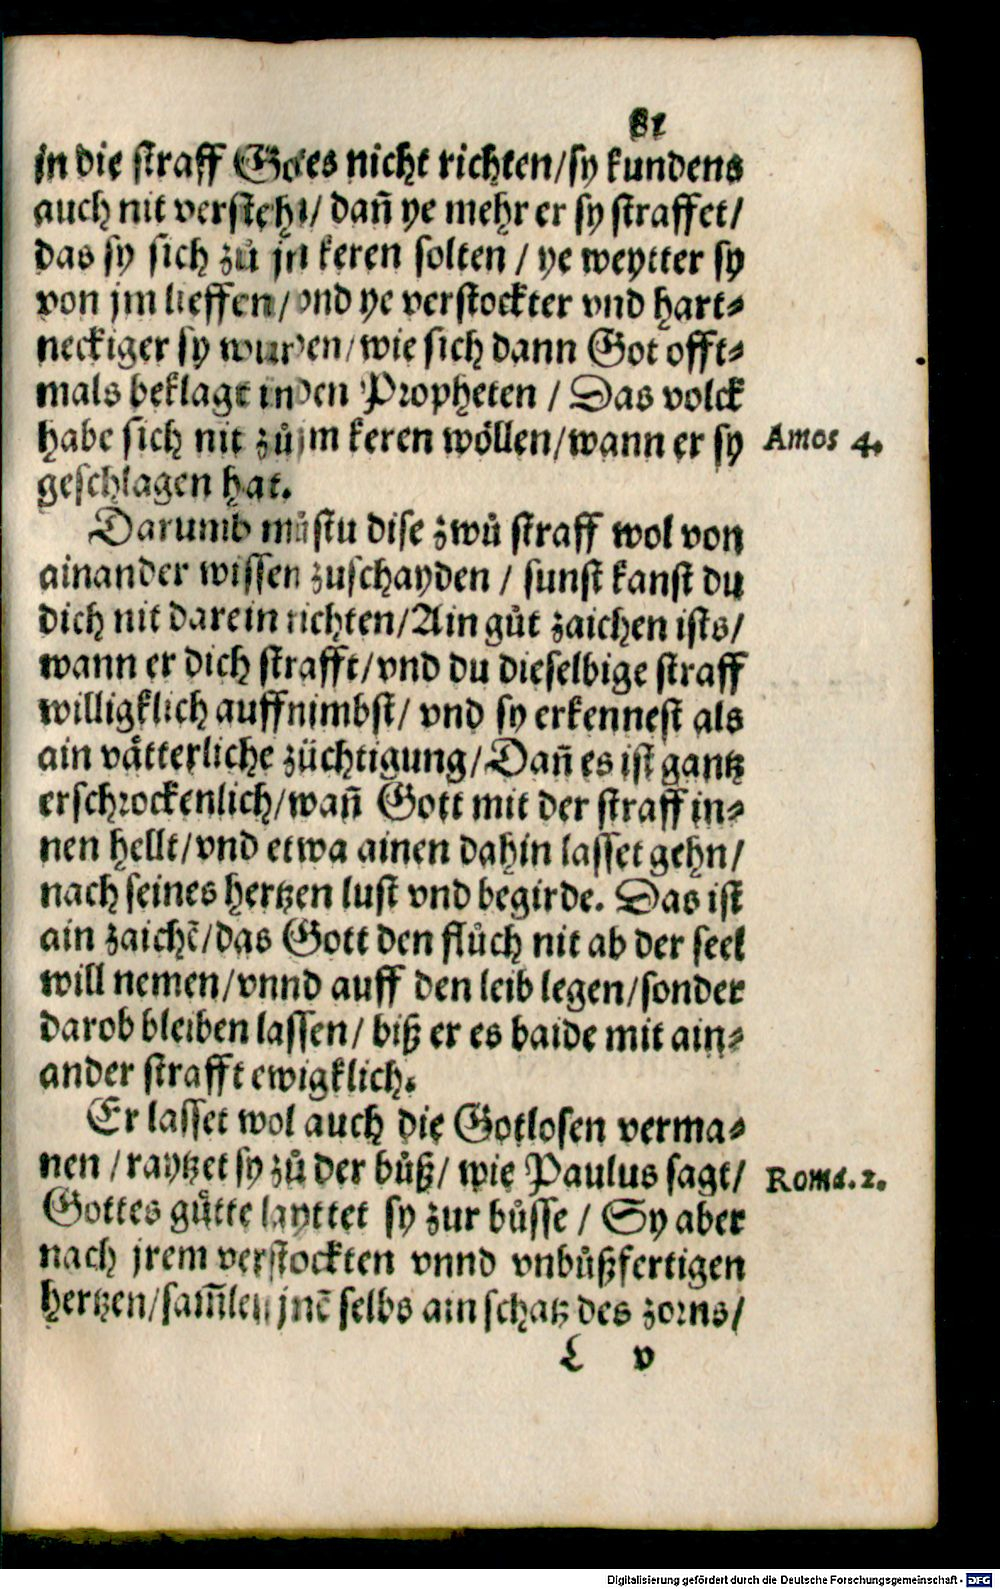 81
in die straff Gotes nicht richten/sy kundens
auch nit versteht/ dañ ye mehr er sy straffet/
das sy sich zů jn keren solten / ye weytter sy
von jm lieffen/vnd ye verstockter vnd hart⸗
neckiger sy wurden/wie sich dann Got offt⸗
mals beklagt inden Propheten / Das volck
habe sich nit zů jm keren wöllen/wann er sy Amos 4.
geschlagen hat.
Darumb můstu dise zwů straff wol von
ainander wissen zuschayden / sunst kanst du
dich nit darein richten/Ain gůt zaichen ists/
wann er dich strafft/vnd du dieselbige straff
willigklich auffnimbst/ vnd sy erkennest als
ain vätterliche züchtigung/Dañ es ist gantz
erschrockenlich/wañ Gott mit der straff in⸗
nen hellt/vnd etwa ainen dahin lasset gehn/
nach seines hertzen lust vnd begirde. Das ist
ain zaichē/das Gott den flůch nit ab der seel
will nemen/vnnd auff den leib legen/sonder
darob bleiben lassen/ biß er es baide mit ain⸗
ander strafft ewigklich.
Er lasset wol auch die Gotlosen verma⸗
nen /raytzet sy zů der bůß/ wie Paulus sagt/ Roma. 2.
Gottes gůtte layttet sy zur bůsse / Sy aber
nach jrem verstockten vnnd vnbůßfertigen
hertzen/sam̃len jnē selbs ain schatz des zorns/
L v
Digitalisierung gefördert durch die Deutsche Forschungsgemeinschaft - DFG